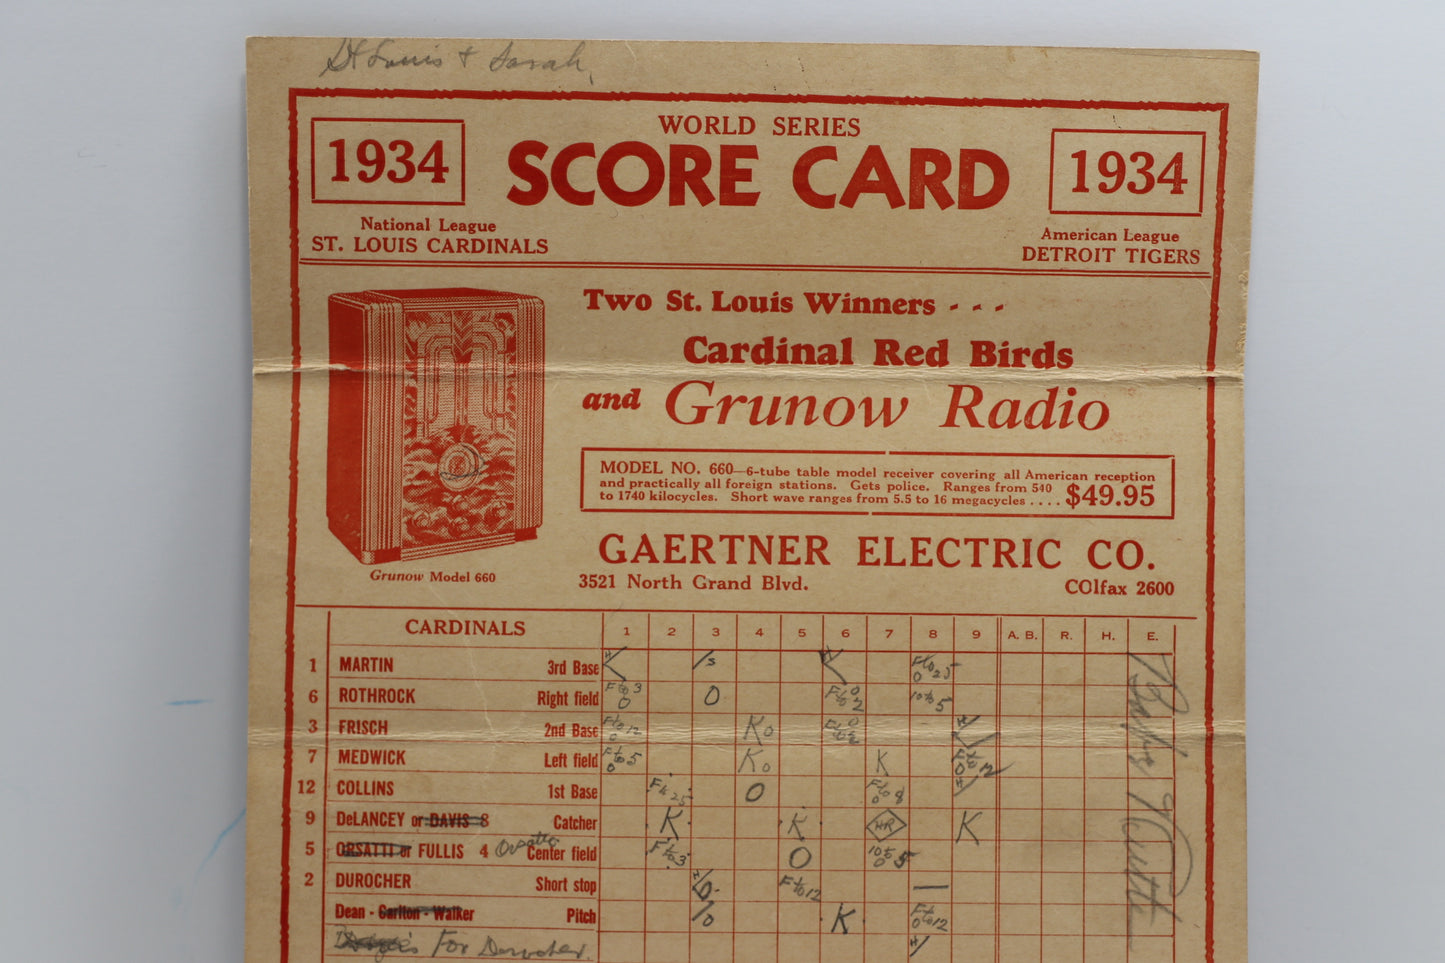 & Sarah,
WORLD SERIES
1934 SCORE CARD 1934
National League
ST. LOUIS CARDINALS
American League
DETROIT TIGERS
Two St. Louis Winners - - -
Cardinal Red Birds
and Grunow Radio
MODEL NO. 660—6-tube table model receiver covering all American reception
and practically all foreign stations. Gets police. Ranges from 540
to 1740 kilocycles. Short wave ranges from 5.5 to 16 megacycles .... $49.95
GAERTNER ELECTRIC CO.
Grunow Model 660
3521 North Grand Blvd. COlfax 2600
CARDINALS 1 2 3 4 5 6 7 8 9 A. B. R. H. E.
1 MARTIN 3rd Base
6 ROTHROCK Right field
3 FRISCH 2nd Base Ko
7 MEDWICK Left field Ko K
12 COLLINS 1st Base O
9 DeLANCEY or DAVIS 8 Catcher K K HR K
5 ORSATTI or FULLIS 4 Orsatti Center field O
2 DUROCHER Short stop
Dean - Carlton - Walker Pitch K
For Durocher.